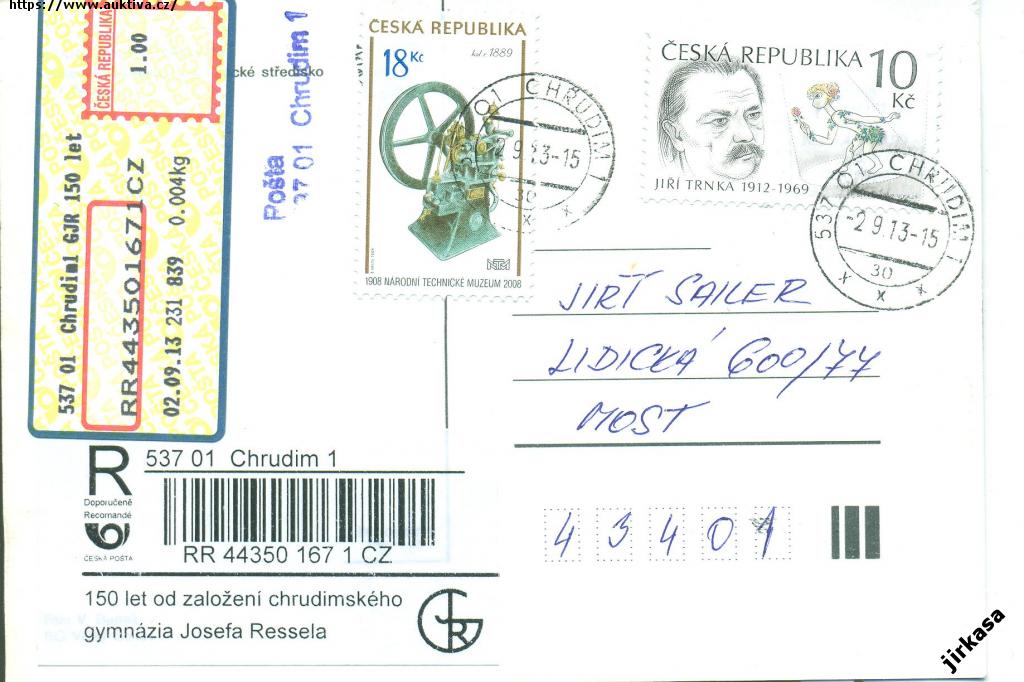 https://www.auktiva.cz/
ČESKÁ REPUBLIKA
1.00
537 01 Chrudim1 GJR 150 let
RR443501671CZ
02.09.13 231 839 0.004kg
cké středisko
Pošta
37 01 Chrudim 1
ČESKÁ REPUBLIKA
18 Kč
kol. r. 1889
NTM
1908 NÁRODNÍ TECHNICKÉ MUZEUM 2008
01 CHRUDIM 1
-2.9.13-15
30
ČESKÁ REPUBLIKA
10 Kč
JIŘÍ TRNKA 1912-1969
537 01 CHRUDIM 1
-2.9.13-15
30
JIŘÍ SAILER
LIDICKÁ 600/77
MOST
43401
R
Doporučeně
Recomandé
ČESKÁ POŠTA
537 01 Chrudim 1
RR 44350 167 1 CZ
150 let od založení chrudimského
gymnázia Josefa Ressela
GJR
jirkasa